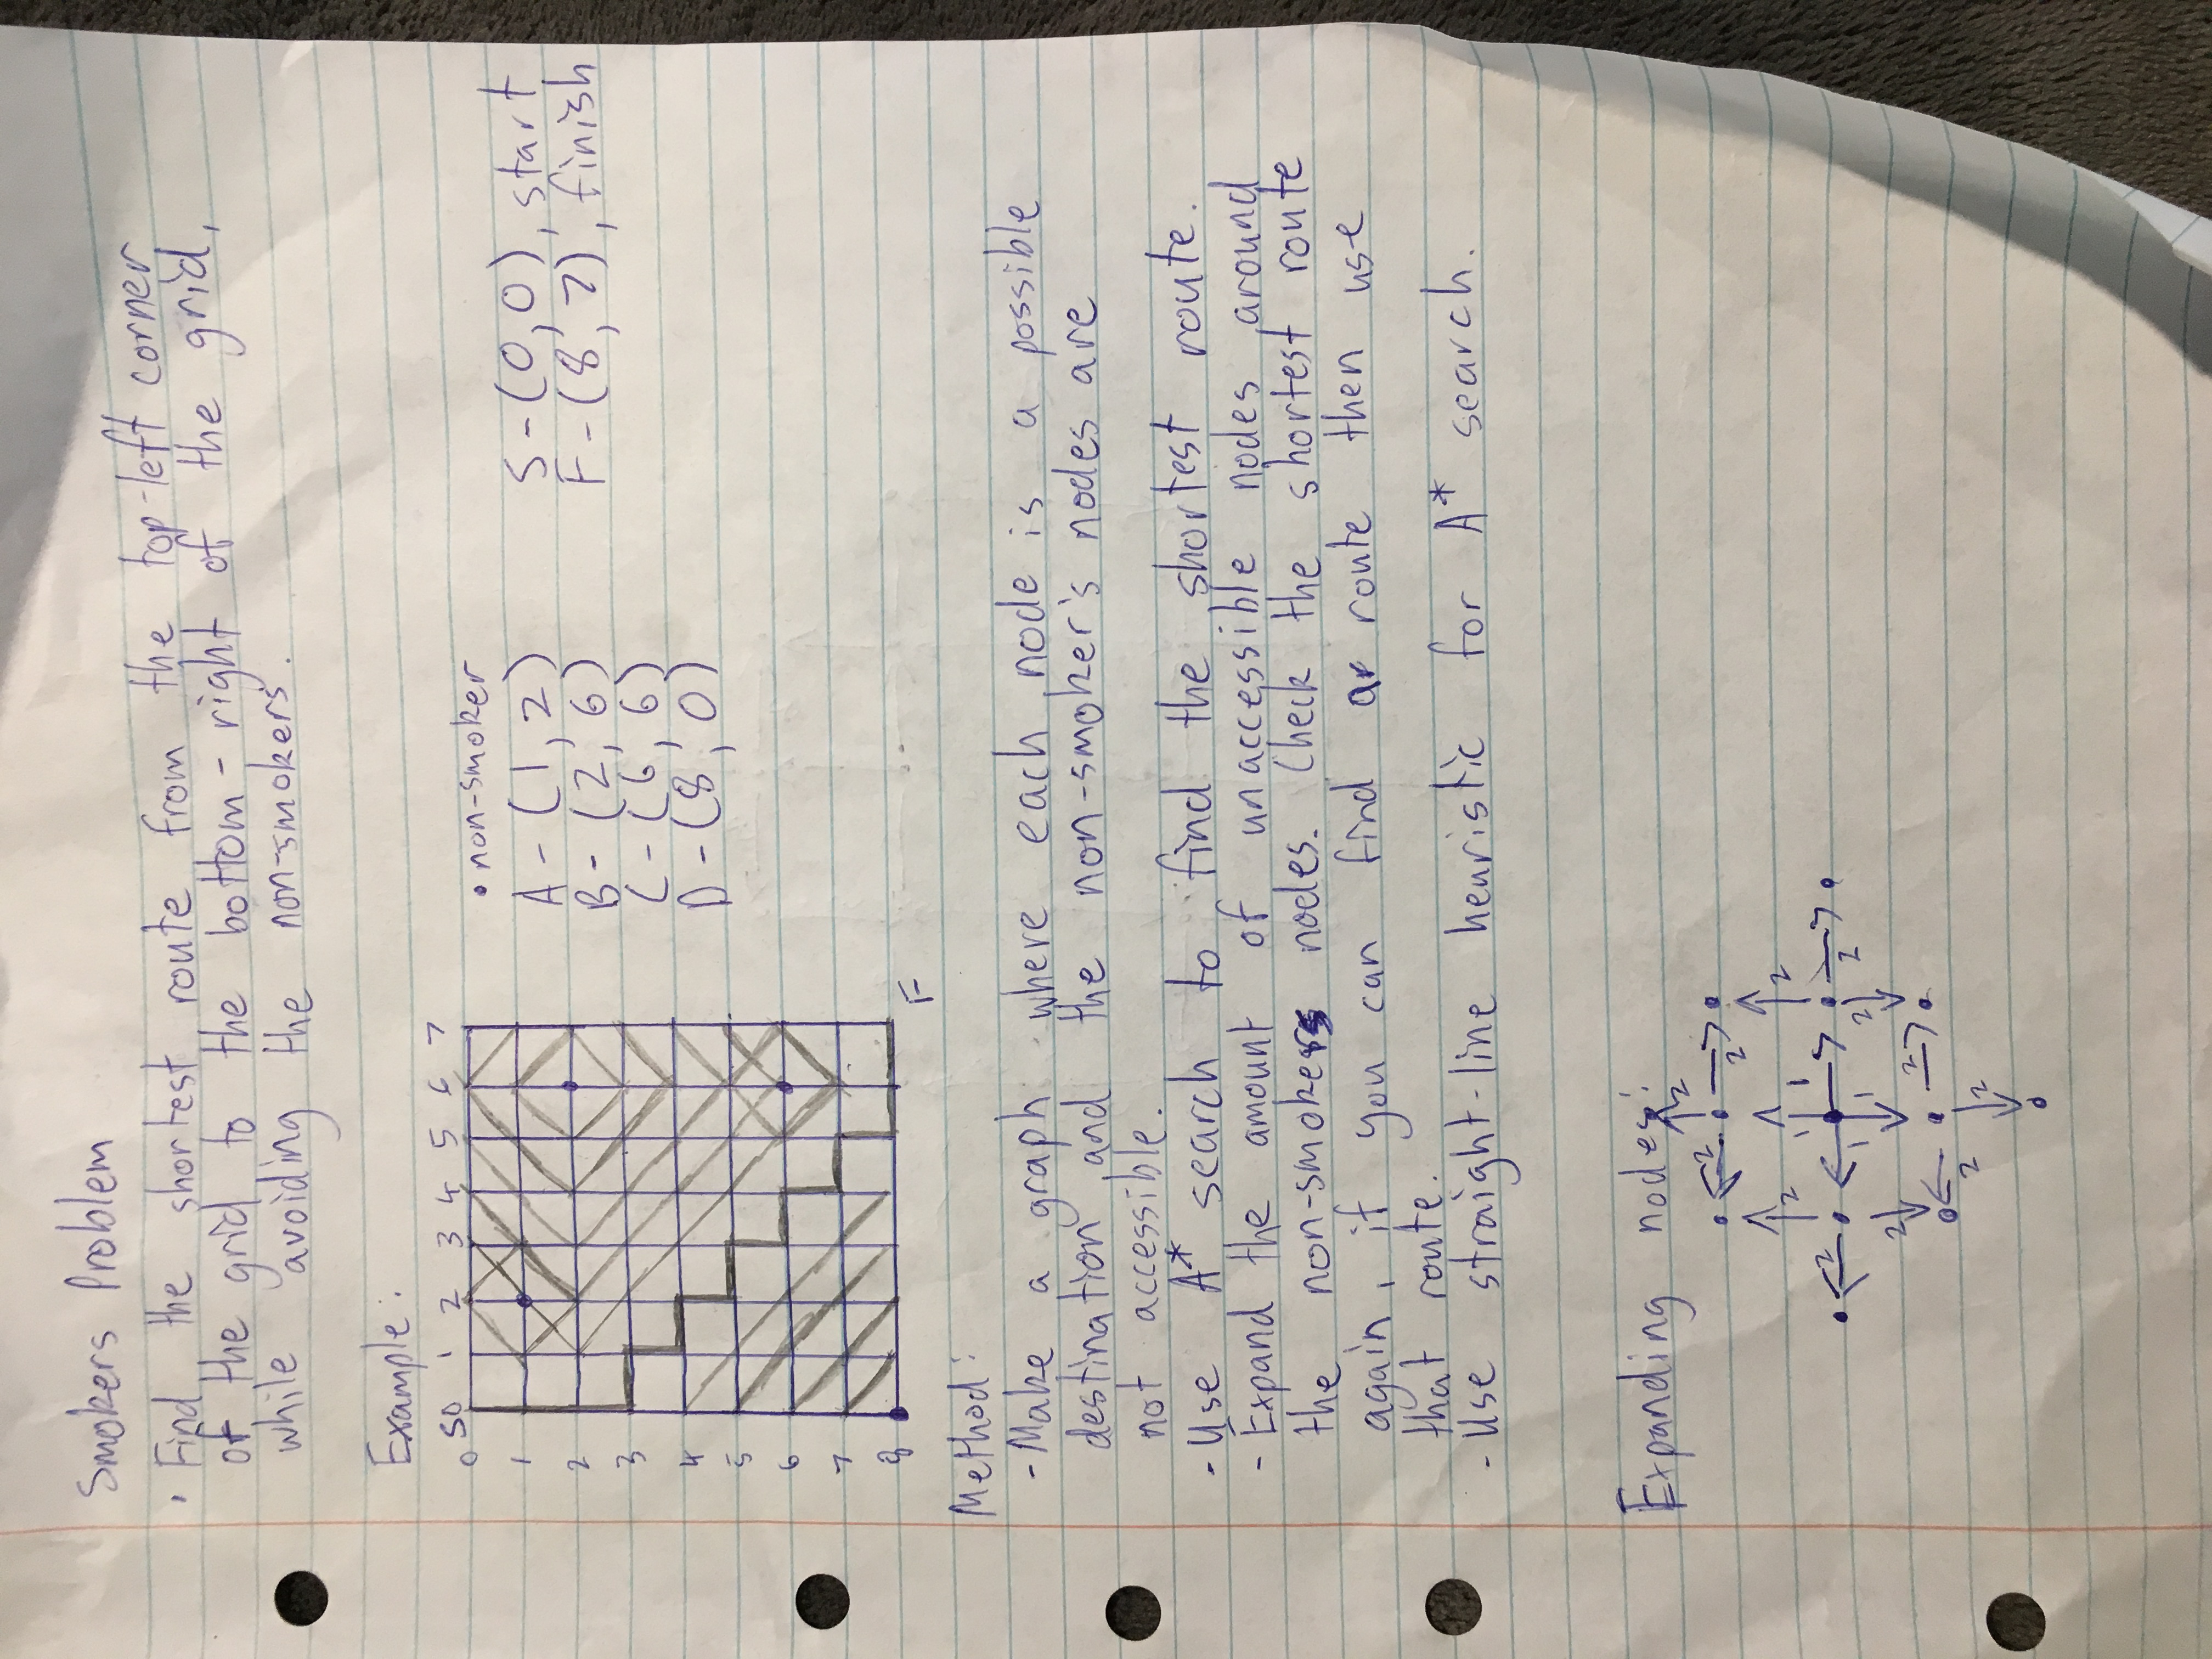 Smokers Problem
• Find the shortest route from the top-left corner
of the grid to the bottom-right of the grid,
while avoiding the non-smokers.
Example:
S0 1 2 3 4 5 6 7
0
1
2
3
4
5
6
7
8
F
• non-smoker
A - (1, 2)
B - (2, 6)
C - (6, 6)
D - (8, 0)
S - (0,0), start
F - (8, 7), finish
Method:
- Make a graph where each node is a possible
destination and the non-smoker's nodes are
not accessible.
- Use A* search to find the shortest route.
- Expand the amount of unaccessible nodes around
the non-smokers nodes. Check the shortest route
again, if you can find a route then use
that route.
- Use straight-line heuristic for A* search.
Expanding nodes:
2
2 2
2 1 1 2
2 1 1 2 2
2 2
2
2